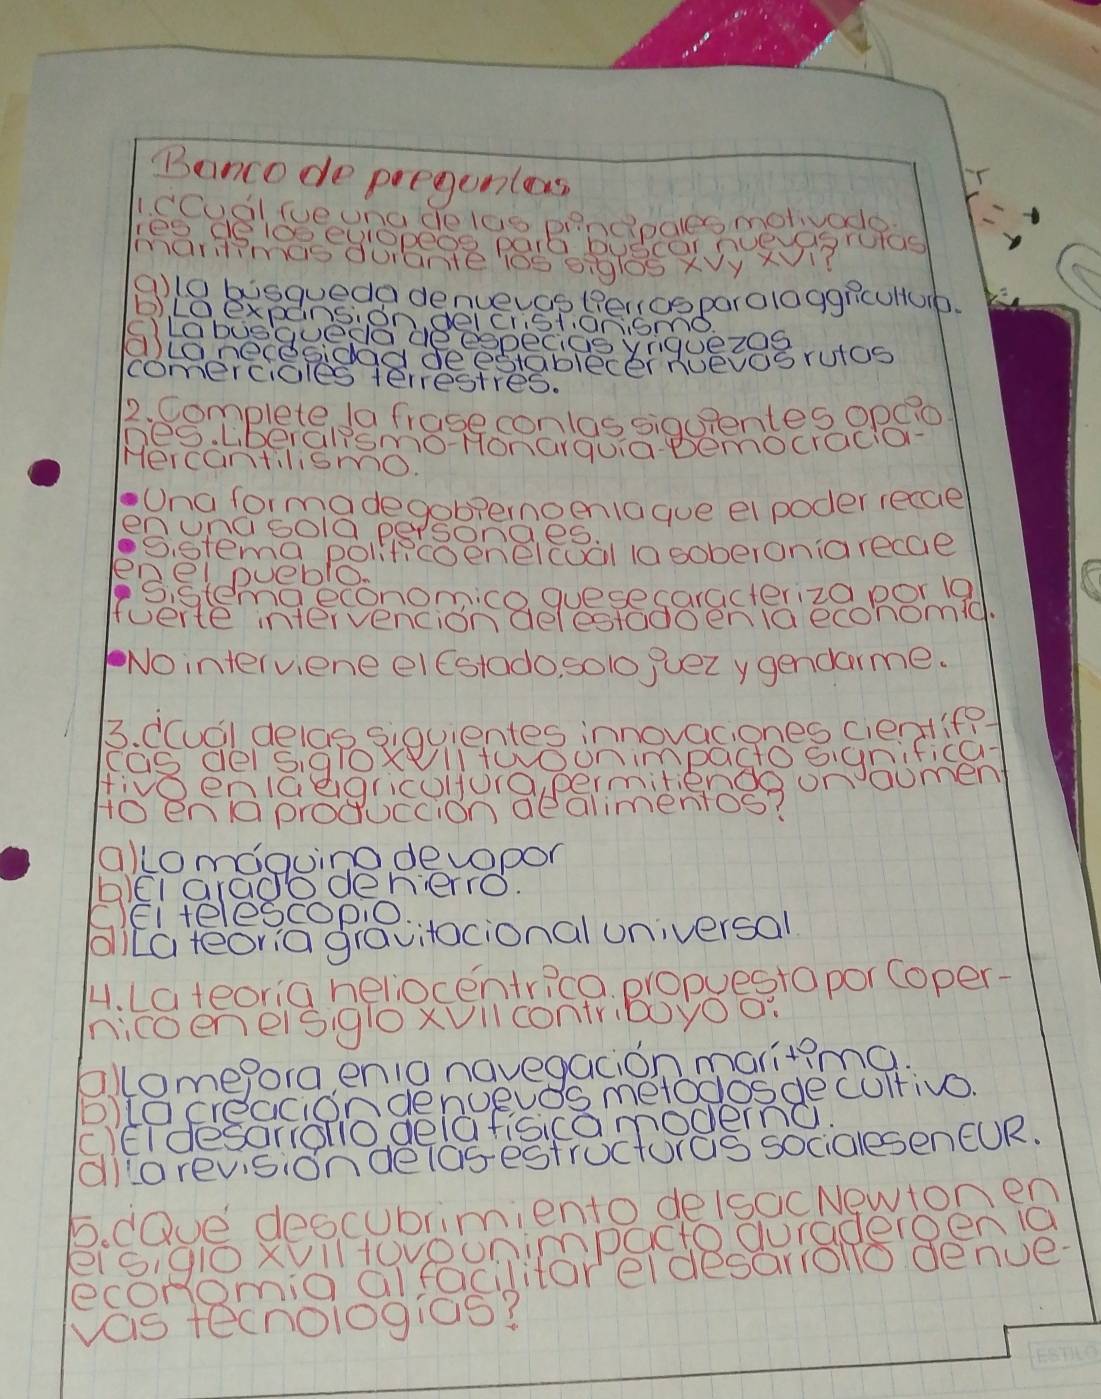 Banco de preguntas
1. ¿Cuál fue una de las principales motivado-
res de los europeos para buscar nuevas rutas
marítimas durante los siglos XV y XVI?
a) La búsqueda de nuevas tierras para la aggricultura.
b) La expansión del cristianismo.
c) La busqueda de especias y riquezas
d) La necesidad de establecer nuevos rutas
comerciales terrestres.
2. Complete la frase con las siguientes opcio-
nes. Liberalismo-Monarquia-Democracia-
Mercantilismo.
• Una forma de gobierno en la que el poder recae
en una sola persona es.
• Sistema politico en el cual la soberania recae
en el pueblo.
• Sistema economico que se caracteriza por la
fuerte intervencion del estado en la economia.
• No interviene el Estado, solo juez y gendarme.
3. ¿Cuál de las siguientes innovaciones cientifi-
cas del siglo XVII tuvo un impacto significa-
tivo en la agricultura, permitiendo un aumen
to en la produccion de alimentos?
a) La máquina de vapor
b) El arado de hierro.
c) El telescopio.
d) La teoría gravitacional universal
4. La teoria heliocéntrica. propuesta por Coper-
nico en el siglo XVII contribuyo a:
a) La mejora en la navegación marítima.
b) La creación de nuevos métodos de cultivo.
c) El desarrollo de la física moderna.
d) La revisión de las estructuras sociales en EUR.
5. ¿Qué descubrimiento de Isac Newton en
el siglo XVII tuvo un impacto duradero en la
economia al facilitar el desarrollo de nue-
vas tecnologías?
ESTILO